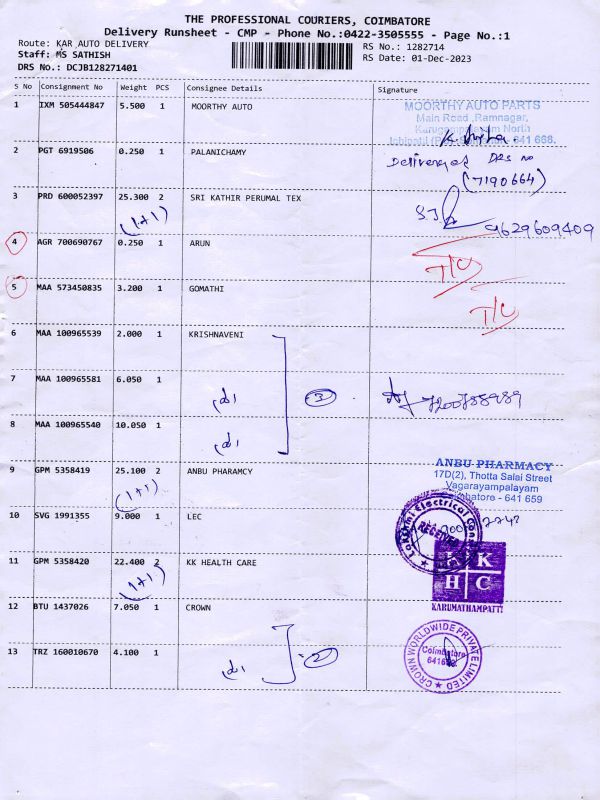 THE PROFESSIONAL COURIERS, COIMBATORE
Delivery Runsheet - CMP - Phone No.:0422-3505555 - Page No.:1
Route: KAR AUTO DELIVERY
RS No.: 1282714
Staff: MS SATHISH
RS Date: 01-Dec-2023
DRS No.: DCJB128271401
S No Consignment No Weight PCS Consignee Details Signature
1 IXM 505444847 5.500 1 MOORTHY AUTO
MOORTHY AUTO PARTS
Main Road, Ramnagar,
Karugampalayam North
641 668.
2 PGT 6919506 0.250 1 PALANICHAMY
DRS no
(7190664)
3 PRD 600052397 25.300 2 SRI KATHIR PERUMAL TEX
(1+1)
9629609409
4 AGR 700690767 0.250 1 ARUN
5 MAA 573450835 3.200 1 GOMATHI
6 MAA 100965539 2.000 1 KRISHNAVENI
7 MAA 100965581 6.050 1
3
7200788989
8 MAA 100965540 10.050 1
9 GPM 5358419 25.100 2 ANBU PHARAMCY
(1+1)
ANBU PHARMACY
17D(2), Thotta Salai Street
Vagarayampalayam
Coimbatore - 641 659
10 SVG 1991355 9.000 1 LEC
Lakshmi Electrical
RECEIVED
11 GPM 5358420 22.400 2 KK HEALTH CARE
(1+1)
K K
H C
KARUMATHAMPATTI
12 BTU 1437026 7.050 1 CROWN
13 TRZ 160010670 4.100 1
2
CROWN WORLDWIDE PRIVATE LIMITED
Coimbatore